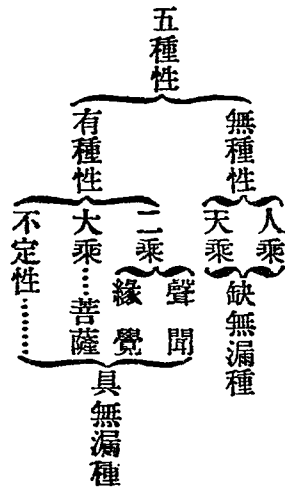 五種性
無種性
人乘
天乘
缺無漏種
有種性
二乘
聲聞
緣覺
大乘……菩薩
不定性………
具無漏種